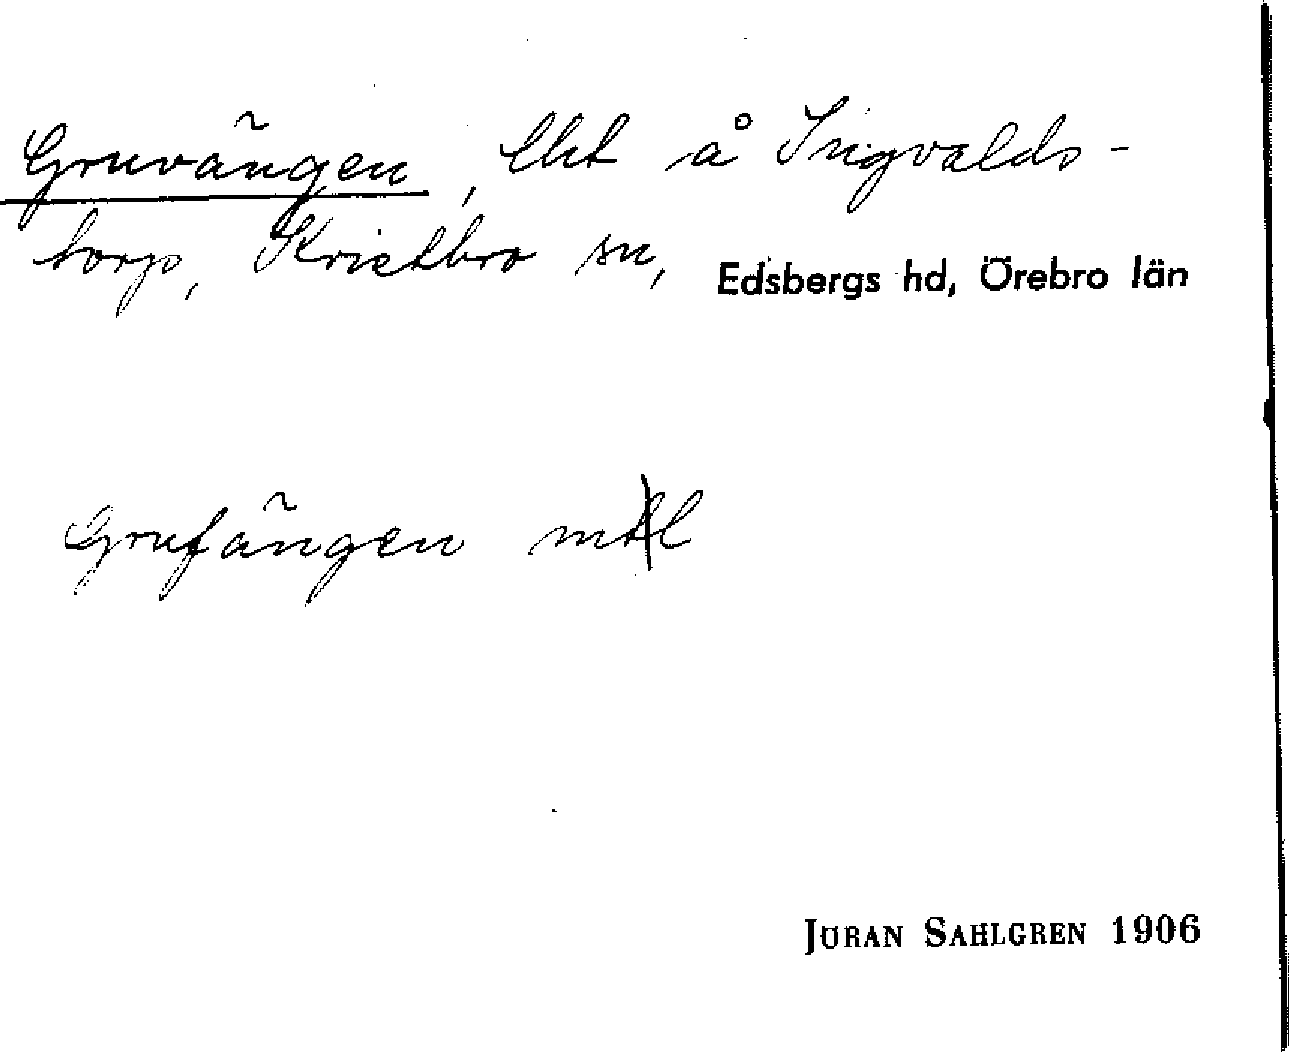 Gruvängen, lht å Ingvalds-
torp, Kvistbro sn, Edsbergs hd, Örebro län
Grufängen
JÖRAN SAHLGREN 1906